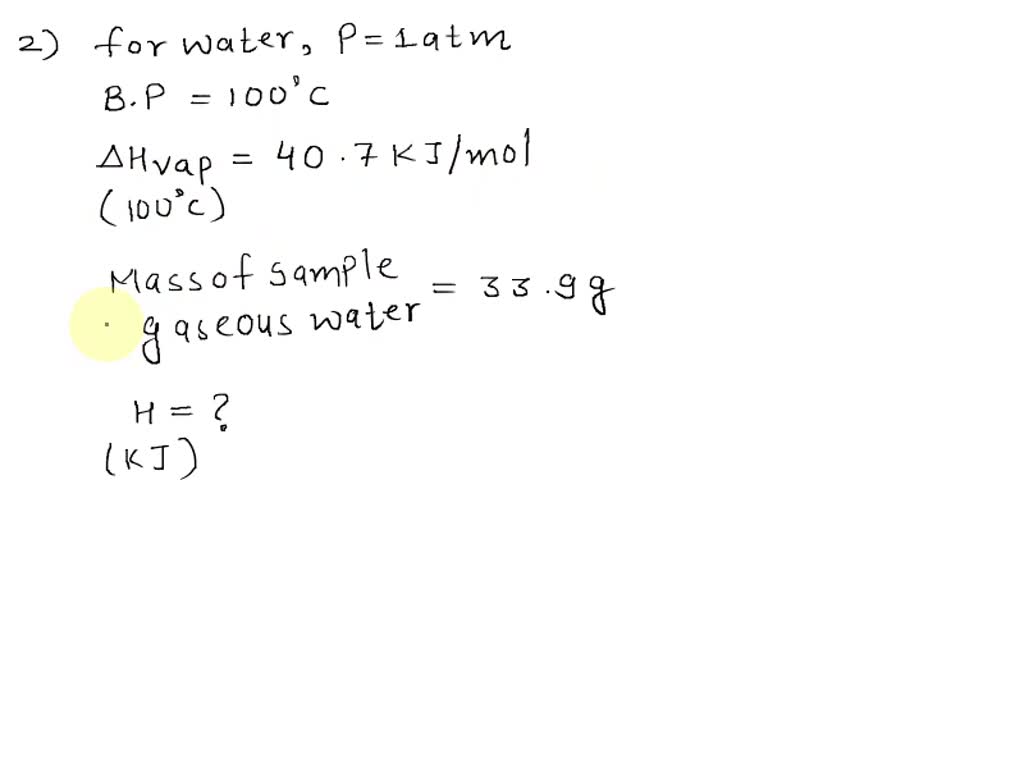 2) for water, P = 1 atm
B.P = 100°C
ΔHvap = 40.7 KJ/mol
(100°C)
Mass of sample
gaseous water = 33.9g
H = ?
(KJ)